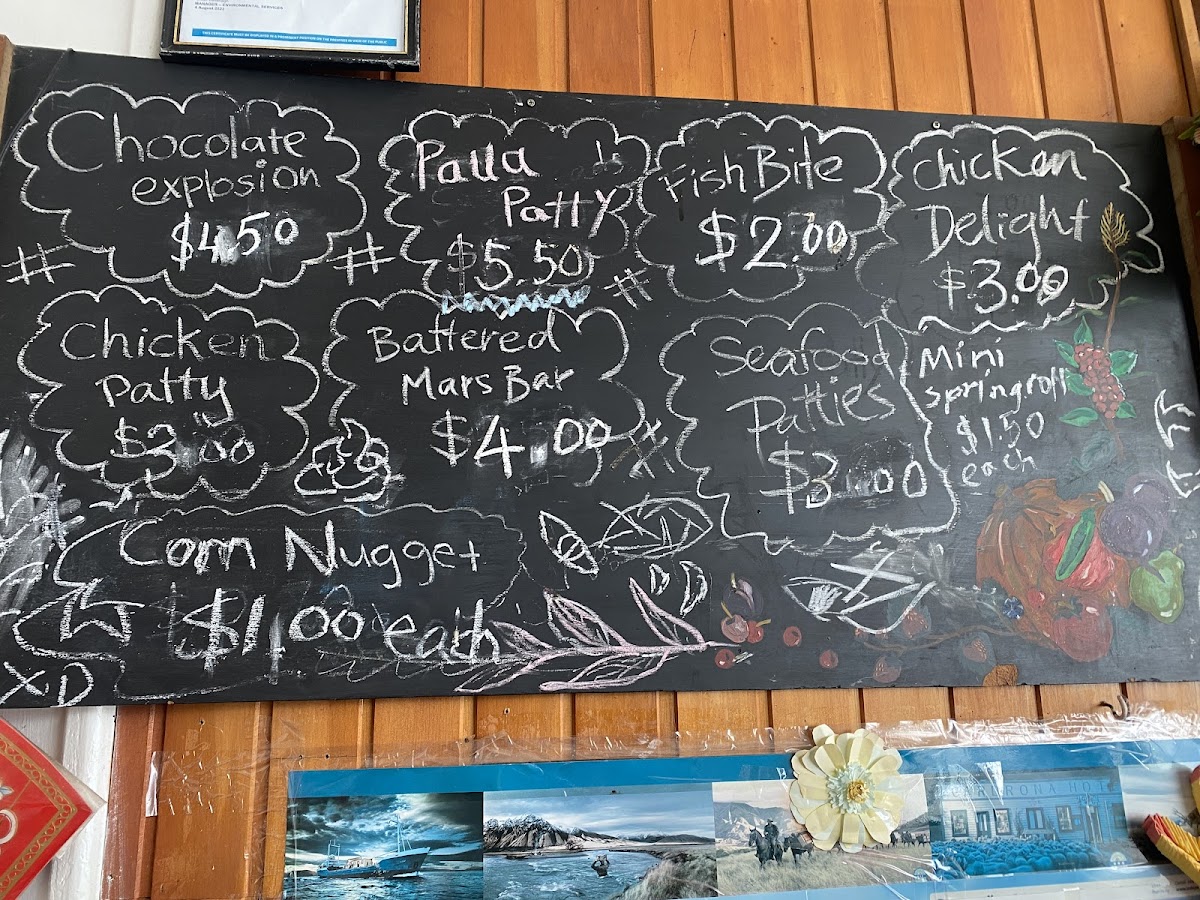 MANAGER – ENVIRONMENTAL SERVICES
Chocolate
explosion
$4.50
Paua
Patty
$5.50
Fish Bite
$2.00
Chicken
Delight
$3.00
#
#
#
Chicken
Patty
$3.00
Battered
Mars Bar
$4.00
#
Seafood
Patties
$3.00
Mini
springroll
$1.50
each
Corn Nugget
$1.00 each
XD